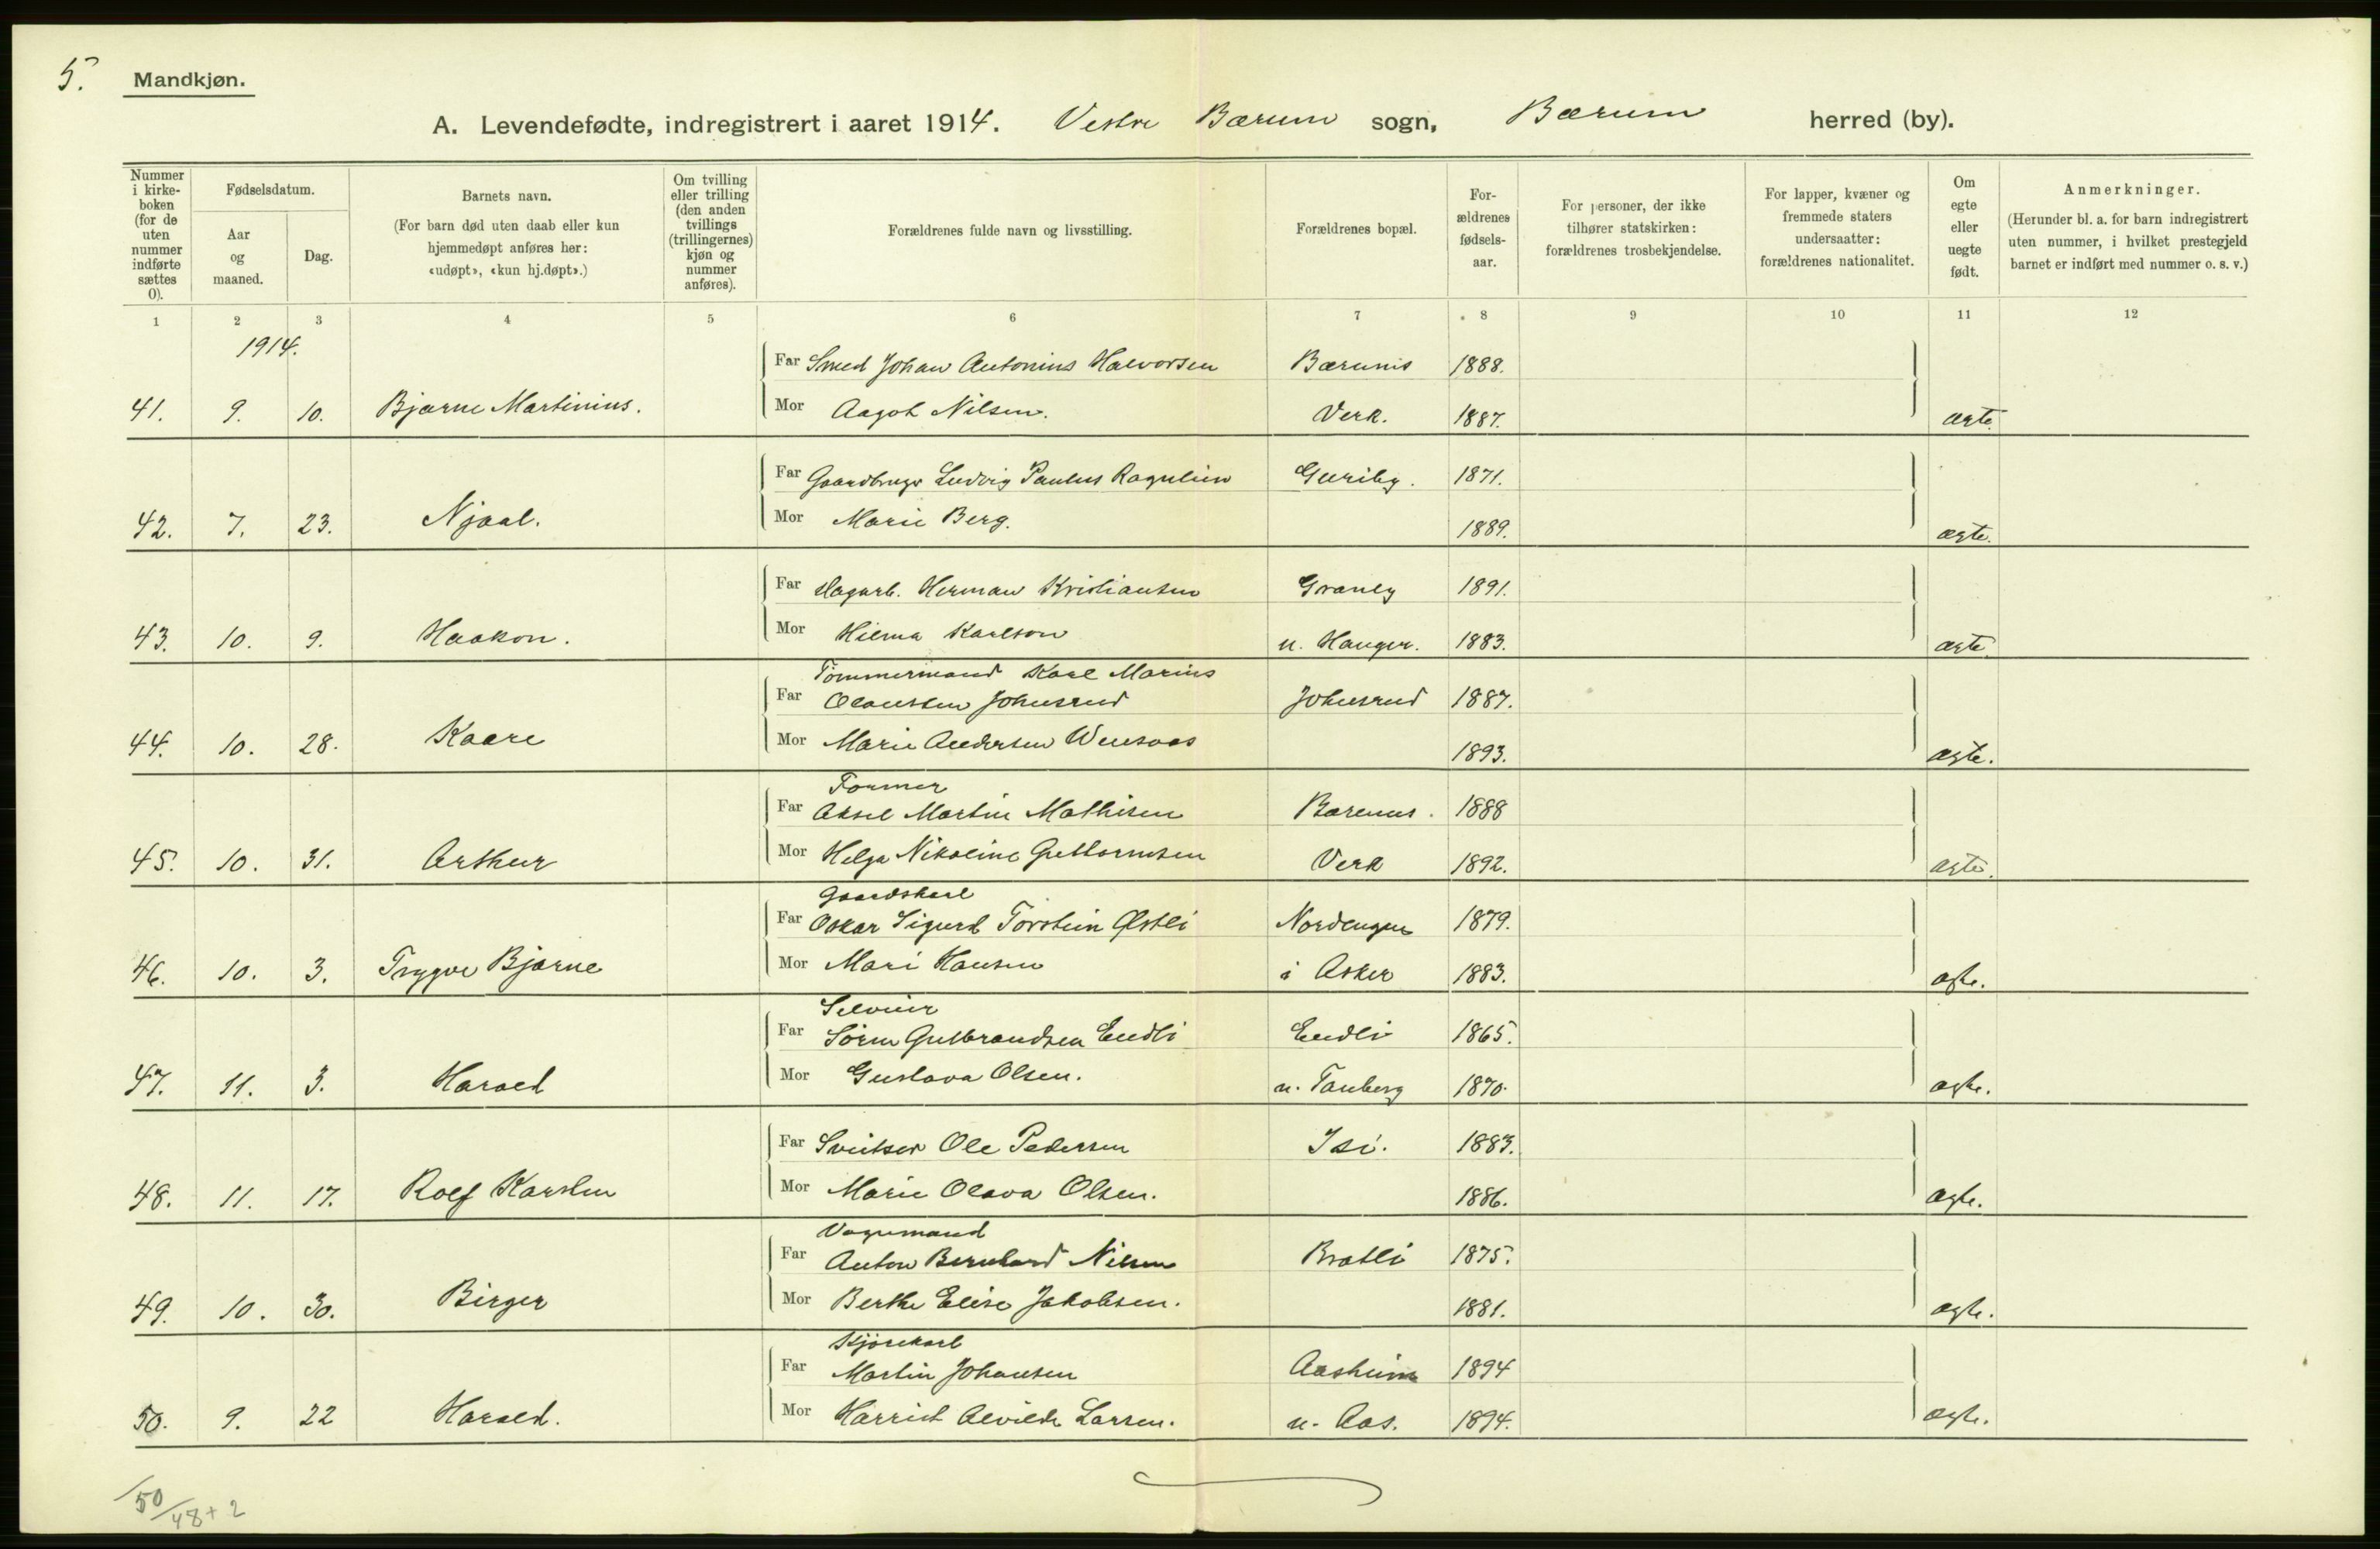 5.
Mandkjøn.
A. Levendefødte, indregistrert i aaret 1914. Vestre Bærum sogn, Bærum herred (by).
Nummer i kirke-boken (for de uten nummer indførte sættes 0).
Fødselsdatum.
Aar og maaned.
Dag.
Barnets navn.
(For barn død uten daab eller kun hjemmedøpt anføres her: «udøpt», «kun hj.døpt».)
Om tvilling eller trilling (den anden tvillings (trillingernes) kjøn og nummer anføres).
Forældrenes fulde navn og livsstilling.
Forældrenes bopæl.
For-ældrenes fødsels-aar.
For personer, der ikke tilhører statskirken: forældrenes trosbekjendelse.
For lapper, kvæner og fremmede staters undersaatter: forældrenes nationalitet.
Om egte eller uegte født.
Anmerkninger.
(Herunder bl. a. for barn indregistrert uten nummer, i hvilket prestegjeld barnet er indført med nummer o. s. v.)
1 2 3 4 5 6 7 8 9 10 11 12
1914.
Far Smed Johan Antonius Halvorsen Bærums 1888.
41. 9. 10. Bjarne Martinius. Mor Aagot Nilsen. Verk. 1887. ægte.
Far Gaardbruger Ludvig Paulus Guriby. 1871.
42. 7. 23. Njaal. Mor Marie Berg. 1889. ægte.
Far Dagarb. Herman Kristiansen Granly 1891.
43. 10. 9. Haakon. Mor Hilma Karlson u. Hauger. 1883. ægte.
Tømmermand Karl Marius
Far Olaussen Johnsrud Johnsrud 1887.
44. 10. 28. Kaare Mor Marie Andersen 1893. ægte.
Former
Far Aksel Martin Mathisen Bærums. 1888
45. 10. 31. Arthur Mor Helga Nikoline Guttormsen Verk 1892. ægte.
Gaardskarl
Far Oskar Sigurd Torstein Østli Nordengen 1879.
46. 10. 3. Trygve Bjarne Mor Mari Hansen i Asker 1883. ægte.
Selveier
Far Søren Gulbrandsen Eudli Eudli 1865.
47. 11. 3. Harald Mor Gustava Olsen. u. Tanberg 1870. ægte.
Far Sveitser Ole Pedersen Isi. 1883.
48. 11. 17. Rolf Karsten Mor Marie Olava Olsen. 1886. ægte.
Vognmand
Far Anton Bernhard Nilsen Bratli 1875.
49. 10. 30. Birger Mor Berthe Elise Jakobsen. 1881. ægte.
Kjørekarl
Far Martin Johansen Aasheim 1894
50. 9. 22 Harald. Mor Harriet Alvilde Larsen. u. Aas. 1894. ægte.
50/48+2